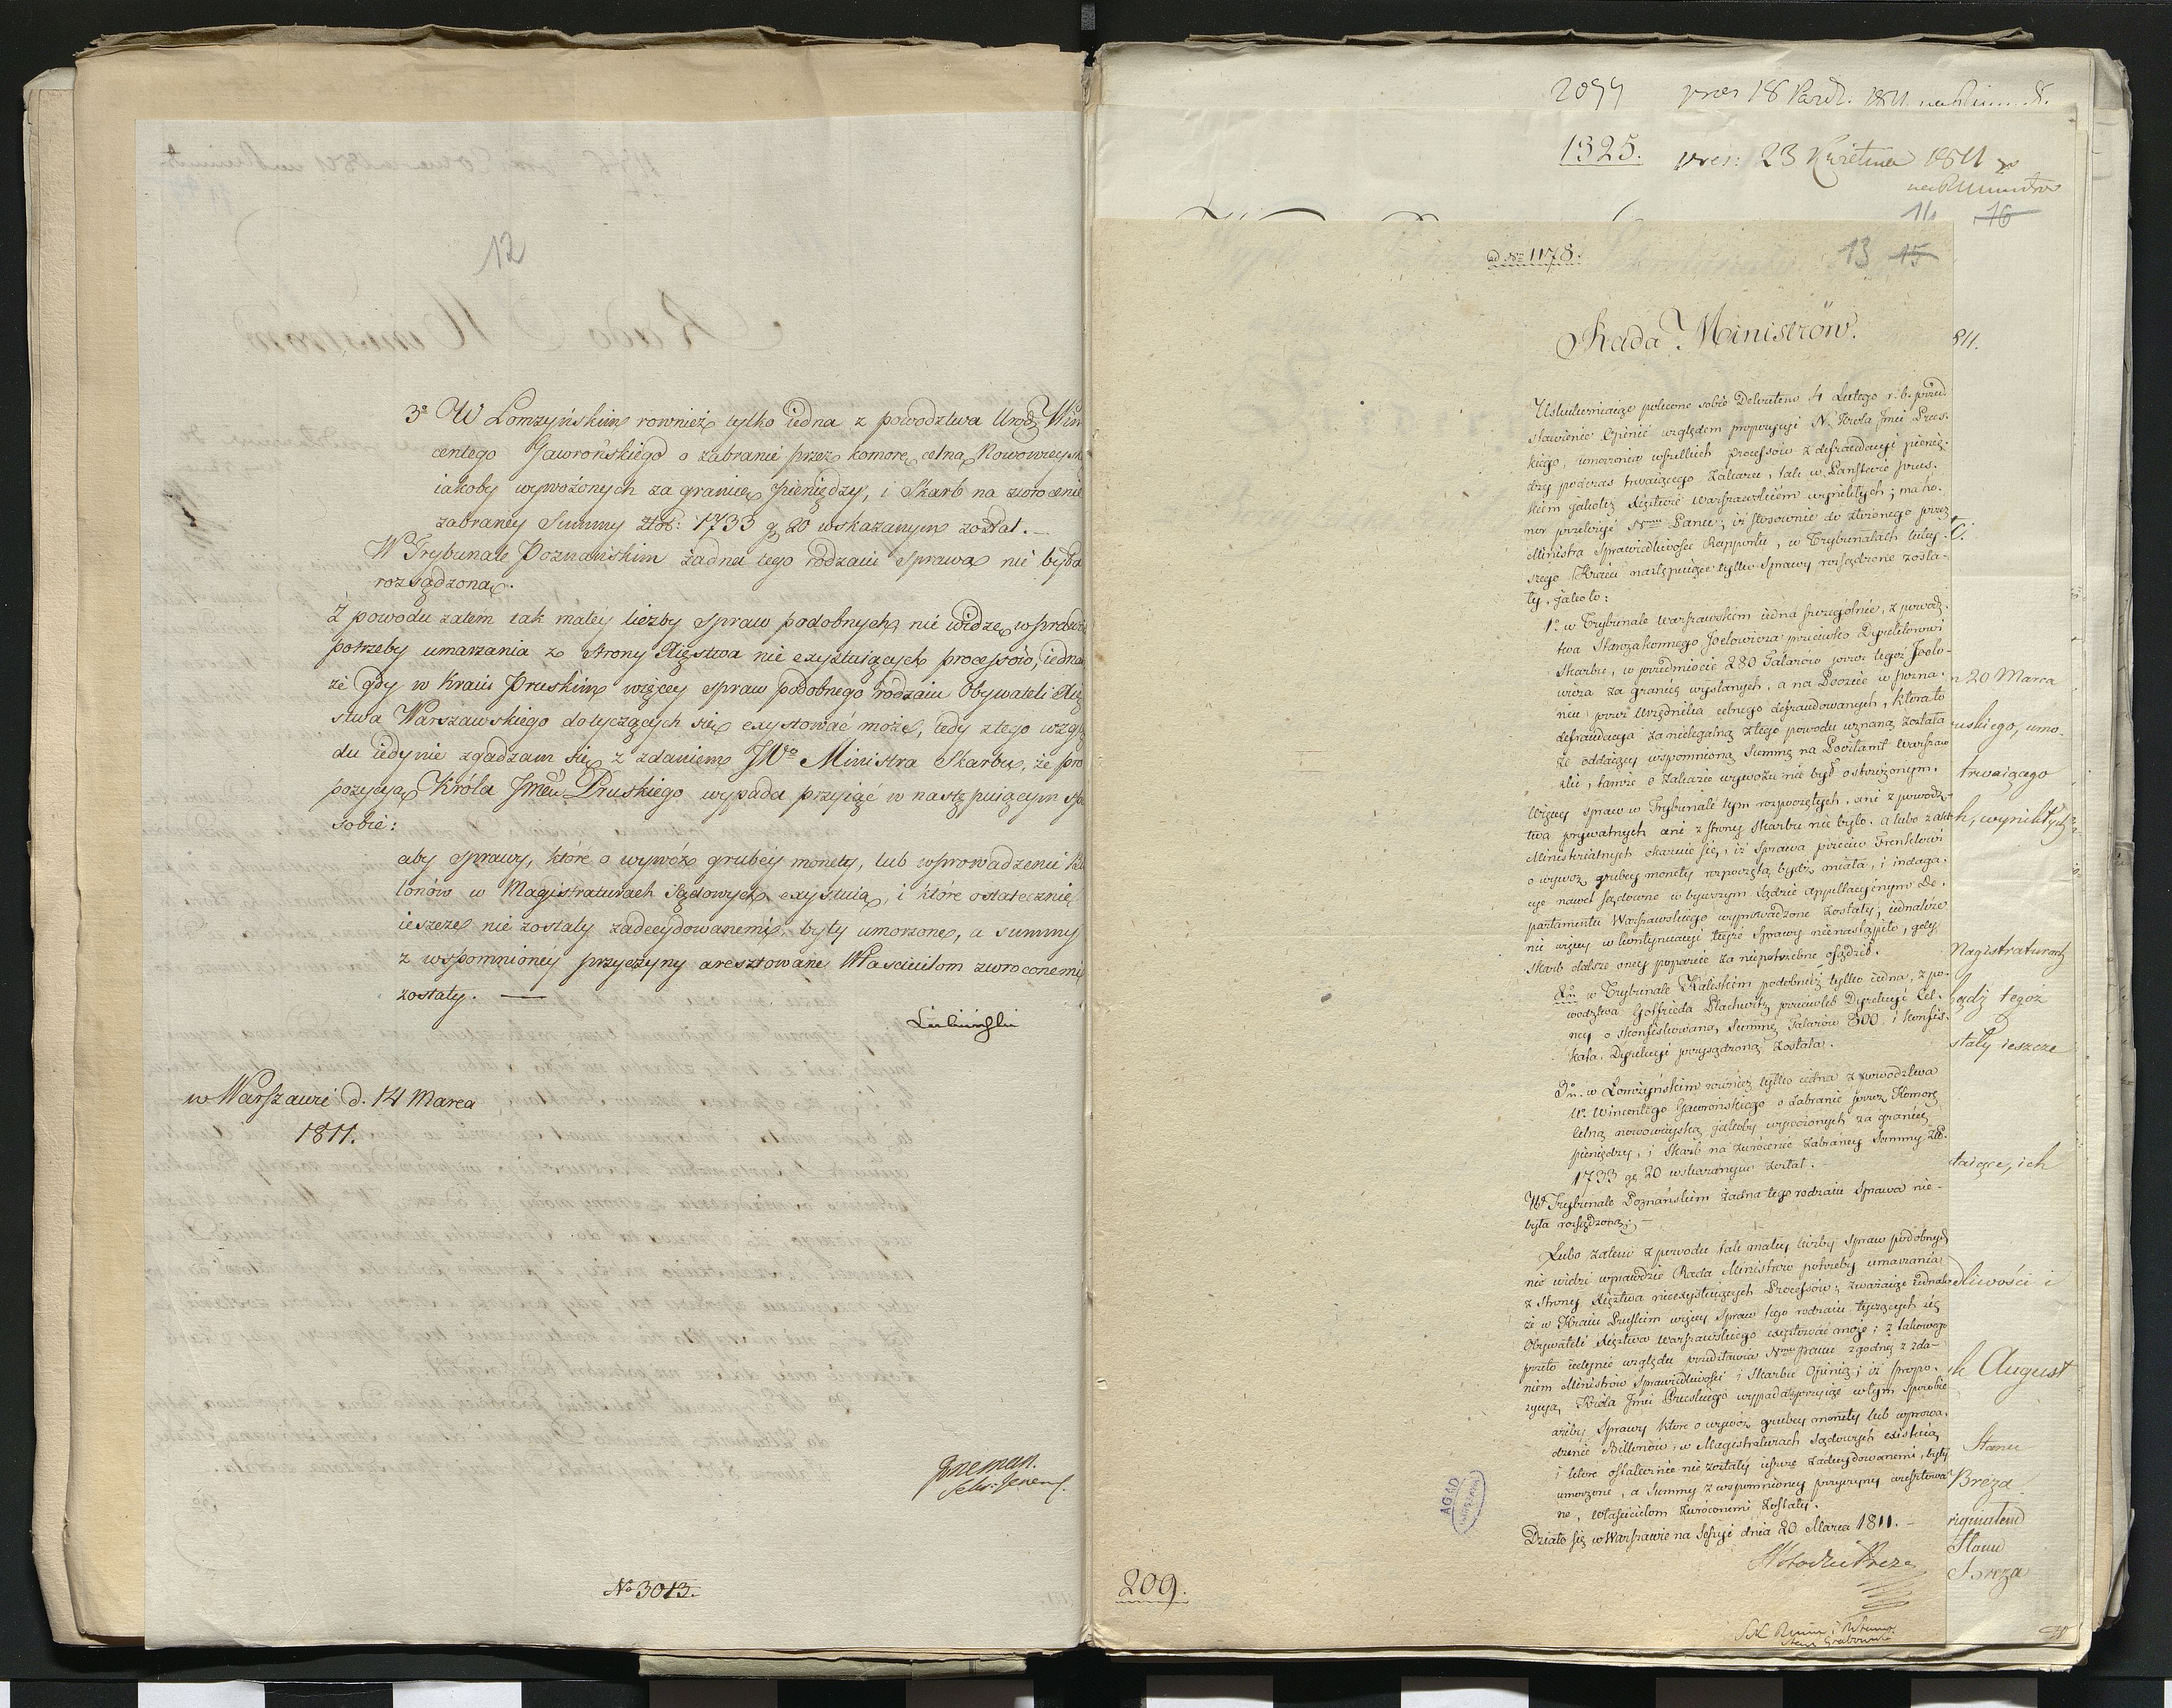 12
3° W Lomzyńskim rownież tylko iedna z powodztwa Urodz. Win
centego Gaworońskiego o zabranie przez komorę celną Nowowieyską
iakoby wywożonych za granicę pieniędzy, i Skarb na zwrocenie
zabraney Summy Złot: 1733 g 20 wskazanym został. —
W Trybunale Poznańskim żadna tego rodzaiu sprawa nie była
rozsądzona.
Z powodu zatem tak małéy liczby spraw podobnych, nie widzę wprawdzie
potrzeby umarzania ze strony Xięstwa nie exystuiących processów, iedna
że gdy w Kraiu Pruskim więcey spraw podobnego rodzaiu Obywateli Xię
stwa Warszawskiego dotyczących się exystować może, tedy z tego wzglę
du iedynie zgadzam się z zdaniem JWo Ministra Skarbu, że pro
pozycyą Króla Jmći Pruskiego wypada przyiąć w następuiącym spo
sobie:
aby sprawy, które o wywóz grubéy monety, lub wprowadzenie Bi
lonów w Magistraturach Sądowych exystuią, i które ostatecznie
ieszcze nie zostały zadecydowanemi, były umorzone, a summy
z wspomnionéy przyczyny aresztowane Właścicielom zwroconemi
zostały. —
Łubieński
w Warszawie d. 14 Marca
1811.
Sekr: Jener.
No 3013.
2099 pres 18 Pazd. 1811
1325. pres: 23 Kwietnia 1811
14 16
ad No 1178.
13 15
Rada Ministrów.
Uskuteczniaiąc polecone sobie Dekretem 4 Lutego r. b. przed-
stawienie Opinii względem propozycyi N. Króla Jmci Prus-
kiego, umorzenia wszelkich processów z defraudacyi pienię-
dzy podczas trwaiącego Zakazu, tak w Państwie Prus-
kiem jakoteż Xięstwie Warszawskiem wynikłych; ma ho-
nor przełożyć Nmu Panu, iż stosownie do złożonego przez
Ministra Sprawiedliwości Rapportu, w Trybunałach tutey-
szego Kraiu następuiące tylko Sprawy rozsądzone zosta-
ły, jakoto:
1° w Trybunale Warszawskim iedna szczególnie, z powodz-
twa Starozakonnego Joelowicza przeciwko Dyrektorowi
Skarbu, w przedmiocie 280 Talarów przez tegoż Joelo-
wicza za granicę wysłanych, a na Poczcie w Pozna-
niu przez Urzędnika celnego defraudowanych, która to
defraudacya za nielegalną z tego powodu uznaną została
że oddaiący wspomnioną Summę na Pocztamt Warszaw
ski, tamże o Zakazie wywozu nie był ostrzeżonym.
Więcey spraw w Trybunale tym rozpoczętych, ani z powodz-
twa prywatnych ani z strony Skarbu nie było. a lubo z akt
Ministerialnych okazuie się, iż Sprawa przeciw Frenklowi
o wywóz grubey monety rozpoczętą bydź miała, i indaga-
cye nawet sądowne w bywszym Sądzie appellacyinym De-
partamentu Warszawskiego wyprowadzone zostały; iednakże
nic więcey w kontynuacyi teyże Sprawy nie nastąpiło, gdy
Skarb dalsze oney poparcie za niepotrzebne osądził.
2° w Trybunale Kaliskim podobnież tylko iedna, z po-
wodztwa Gottfrieda Plachwitz przeciwko Dyrekcyi Cel-
ney o skonfiskowaną Summę Talarów 800 i konfis-
kata Dyrekcyi przysądzoną została.
3° w Łomżyńskim również tylko iedna z powodztwa
Ur. Wincentego Gaworońskiego o zabranie przez Komorę
celną nowowieyską jakoby wywożonych za granicę
pieniędzy, i Skarb na zwrócenie zabraney Summy Złt.
1733 gr 20 wskazanym został.
W Trybunale Poznańskim żadna tego rodzaiu Sprawa nie-
była rozsądzoną. —
Lubo zatem z powodu tak małey liczby spraw podobnych
nie widzi wprawdzie Rada Ministrów potrzeby umarzania
z strony Xięstwa nieexystuiących Processów; zważaiąc iednak
że w Kraiu Pruskim więcey Spraw tego rodzaiu tyczących się
Obywateli Xięstwa Warszawskiego exystować może; z takowego
przeto iedynie względu przedstawia Nmu Panu zgodną z zda-
niem Ministrów Sprawiedliwości i Skarbu Opinią; iż propo-
zycyą Króla Jmci Pruskiego wypada przyiąć w tym sposobie
ażeby Sprawy które o wywóz grubey monety lub wprowa-
dzenie Billonów, w Magistraturach Sądowych exystuią
i które ostatecznie nie zostały ieszcze zadecydowanemi, były
umorzone, a Summy z wspomnioney przyczyny aresztowa-
ne, Właścicielom zwróconemi zostały.
Działo się w Warszawie na Sessyi dnia 20 Marca 1811. —
Stan. Grabowski
209.
AGAD
811.
n 20 Marca
uskiego, umo-
trwaiącego
h, wynikłych
Magistraturach
bądź tegoż
stały ieszcze
taiące, ich
dliwości i
k August
Stanu
Breza
Stanu
Breza